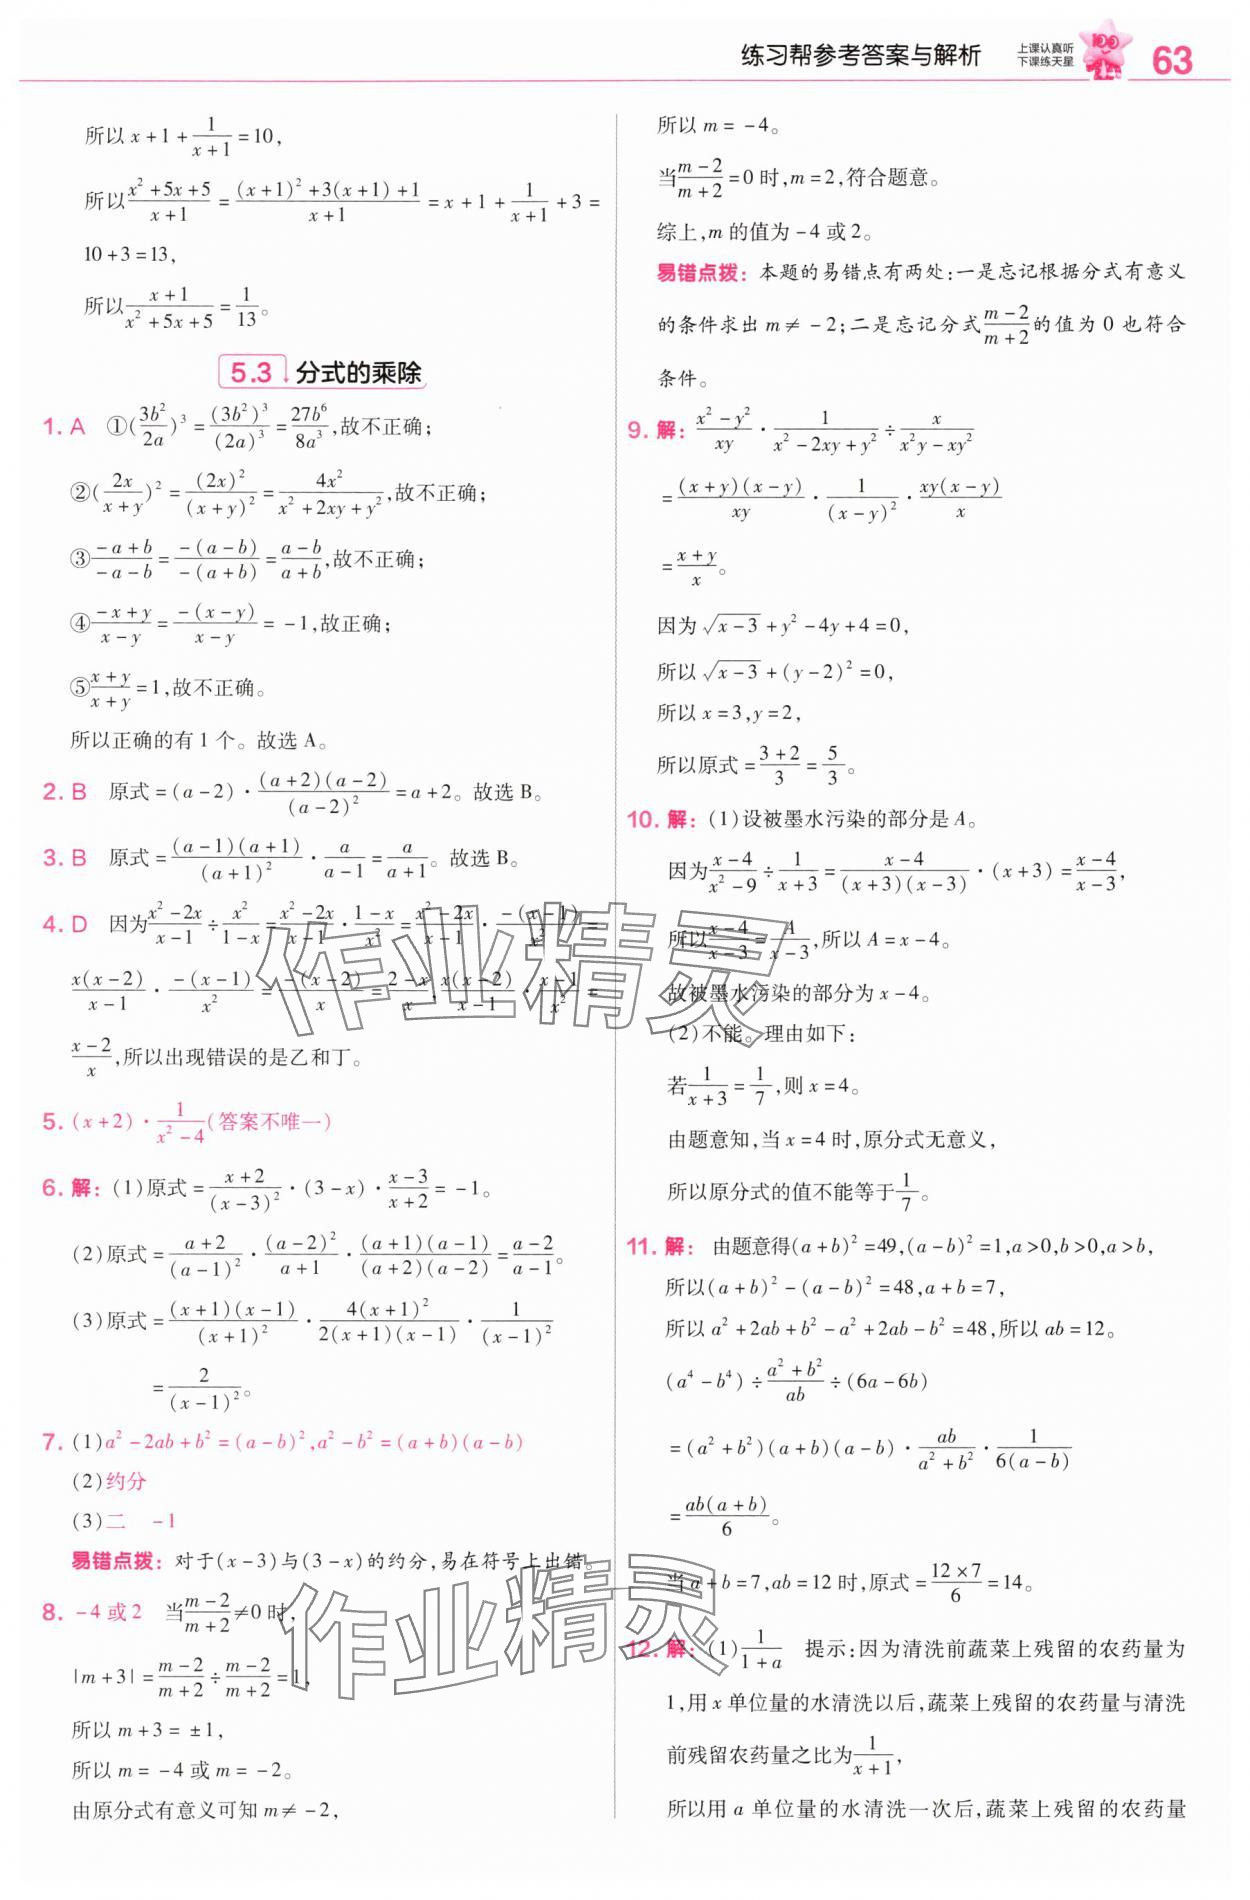 练习帮参考答案与解析
上课认真听
下课练天星
63
所以 x+1+\frac{1}{x+1}=10,
所以\frac{x²+5x+5}{x+1}=\frac{(x+1)²+3(x+1)+1}{x+1}=x+1+\frac{1}{x+1}+3=
10+3=13,
所以\frac{x+1}{x²+5x+5}=\frac{1}{13}。
5.3 分式的乘除
1. A ①(\frac{3b²}{2a})³=\frac{(3b²)³}{(2a)³}=\frac{27b⁶}{8a³},故不正确;
②(\frac{2x}{x+y})²=\frac{(2x)²}{(x+y)²}=\frac{4x²}{x²+2xy+y²},故不正确;
③\frac{-a+b}{-a-b}=\frac{-(a-b)}{-(a+b)}=\frac{a-b}{a+b},故不正确;
④\frac{-x+y}{x-y}=\frac{-(x-y)}{x-y}=-1,故正确;
⑤\frac{x+y}{x+y}=1,故不正确。
所以正确的有1个。故选A。
2. B 原式=(a-2)·\frac{(a+2)(a-2)}{(a-2)²}=a+2。故选B。
3. B 原式=\frac{(a-1)(a+1)}{(a+1)²}·\frac{a}{a-1}=\frac{a}{a+1}。故选B。
4. D 因为\frac{x²-2x}{x-1}÷\frac{x²}{1-x}=\frac{x²-2x}{x-1}·\frac{1-x}{x²}=\frac{x²-2x}{x-1}·\frac{-(x-1)}{x²}=
\frac{x(x-2)}{x-1}·\frac{-(x-1)}{x²}=\frac{-(x-2)}{x}=\frac{2-x}{x},\frac{x(x-2)}{x-1}·\frac{x-1}{x²}=
\frac{x-2}{x},所以出现错误的是乙和丁。
5. (x+2)·\frac{1}{x²-4}(答案不唯一)
6. 解:(1)原式=\frac{x+2}{(x-3)²}·(3-x)·\frac{x-3}{x+2}=-1。
(2)原式=\frac{a+2}{(a-1)²}·\frac{(a-2)²}{a+1}·\frac{(a+1)(a-1)}{(a+2)(a-2)}=\frac{a-2}{a-1}。
(3)原式=\frac{(x+1)(x-1)}{(x+1)²}·\frac{4(x+1)²}{2(x+1)(x-1)}·\frac{1}{(x-1)²}
=\frac{2}{(x-1)²}。
7. (1)a²-2ab+b²=(a-b)²,a²-b²=(a+b)(a-b)
(2)约分
(3)二 -1
易错点拨:对于(x-3)与(3-x)的约分,易在符号上出错。
8. -4或2 当\frac{m-2}{m+2}≠0时,
|m+3|=\frac{m-2}{m+2}÷\frac{m-2}{m+2}=1,
所以 m+3=±1,
所以 m=-4或 m=-2。
由原分式有意义可知 m≠-2,
所以 m=-4。
当\frac{m-2}{m+2}=0时,m=2,符合题意。
综上,m的值为-4或2。
易错点拨:本题的易错点有两处:一是忘记根据分式有意义
的条件求出 m≠-2;二是忘记分式\frac{m-2}{m+2}的值为0也符合
条件。
9. 解:\frac{x²-y²}{xy}·\frac{1}{x²-2xy+y²}÷\frac{x}{x²y-xy²}
=\frac{(x+y)(x-y)}{xy}·\frac{1}{(x-y)²}·\frac{xy(x-y)}{x}
=\frac{x+y}{x}。
因为\sqrt{x-3}+y²-4y+4=0,
所以\sqrt{x-3}+(y-2)²=0,
所以 x=3,y=2,
所以原式=\frac{3+2}{3}=\frac{5}{3}。
10. 解:(1)设被墨水污染的部分是A。
因为\frac{x-4}{x²-9}÷\frac{1}{x+3}=\frac{x-4}{(x+3)(x-3)}·(x+3)=\frac{x-4}{x-3},
所以\frac{x-4}{x-3}=\frac{A}{x-3},所以A=x-4。
故被墨水污染的部分为x-4。
(2)不能。理由如下:
若\frac{1}{x+3}=\frac{1}{7},则 x=4。
由题意知,当x=4时,原分式无意义,
所以原分式的值不能等于\frac{1}{7}。
11. 解: 由题意得(a+b)²=49,(a-b)²=1,a>0,b>0,a>b,
所以(a+b)²-(a-b)²=48,a+b=7,
所以a²+2ab+b²-a²+2ab-b²=48,所以ab=12。
(a⁴-b⁴)÷\frac{a²+b²}{ab}÷(6a-6b)
=(a²+b²)(a+b)(a-b)·\frac{ab}{a²+b²}·\frac{1}{6(a-b)}
=\frac{ab(a+b)}{6}。
当a+b=7,ab=12时,原式=\frac{12×7}{6}=14。
12. 解:(1)\frac{1}{1+a} 提示:因为清洗前蔬菜上残留的农药量为
1,用x单位量的水清洗以后,蔬菜上残留的农药量与清洗
前残留农药量之比为\frac{1}{x+1},
所以用a单位量的水清洗一次后,蔬菜上残留的农药量
作业精灵
作业精灵